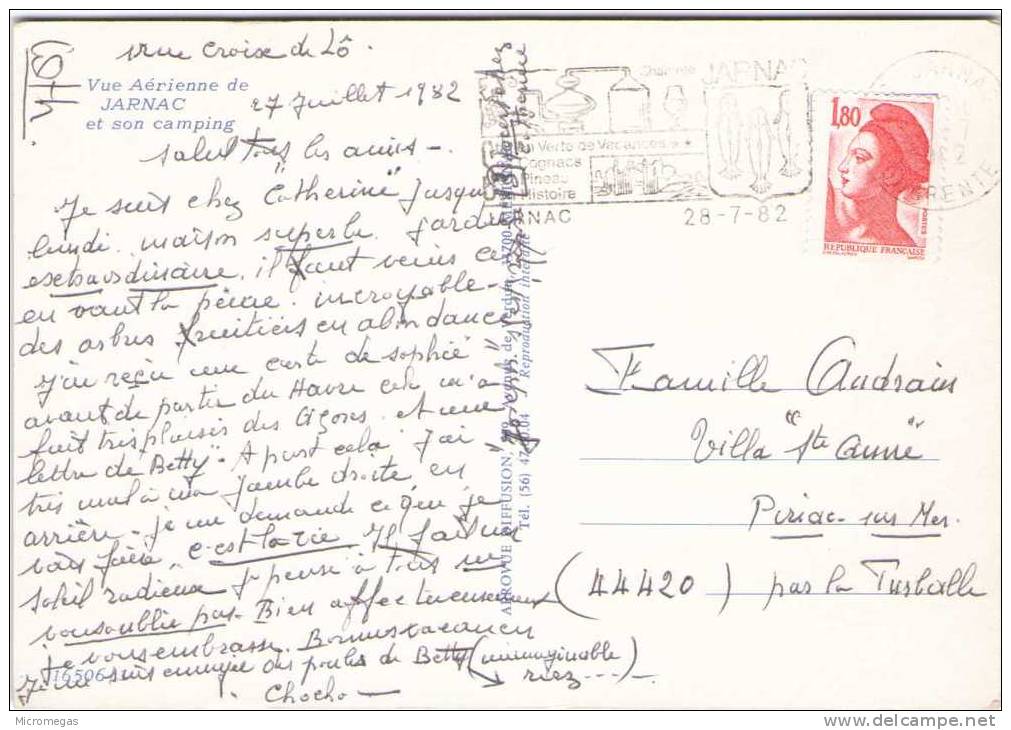 1 rue Croix de Lô.
Vue Aérienne de
JARNAC
et son camping
27 Juillet 1982
Salut tous les amis -
Je suis chez "Catherine" Jusqu'à
lundi. maison superbe. Jardin
extraordinaire, il faut venir ça
en vaut la peine. incroyable -
des arbres fruitiers en abondance
J'ai reçu une carte de Sophie
avant de partir du Havre elle m'a
fait très plaisir des Açores. et une
lettre de Betty - A part cela J'ai
très mal à ma jambe droite, en
arrière - je me demande ce que je
vais faire, c'est la vie Il fait un
soleil radieux Je pense à tous ne
vous oublie pas - Bien affectueusement
je vous embrasse. Bonnes vacances
Je me suis ennuyée des poules de Betty (inimaginable)
riez ---
Chocho -
16506
ARROVUE DIFFUSION,
Tél. (56) 47 Reproduction interdite
Charente JARNAC
Verte de Vacances
Cognacs
Pineau
Histoire
JARNAC
28-7-82
1,80
REPUBLIQUE FRANÇAISE
POSTES
Famille Audrain
Villa "Ste Anne"
Piriac-sur Mer.
(44420) par la Turballe
Micromegas
delcampe.net